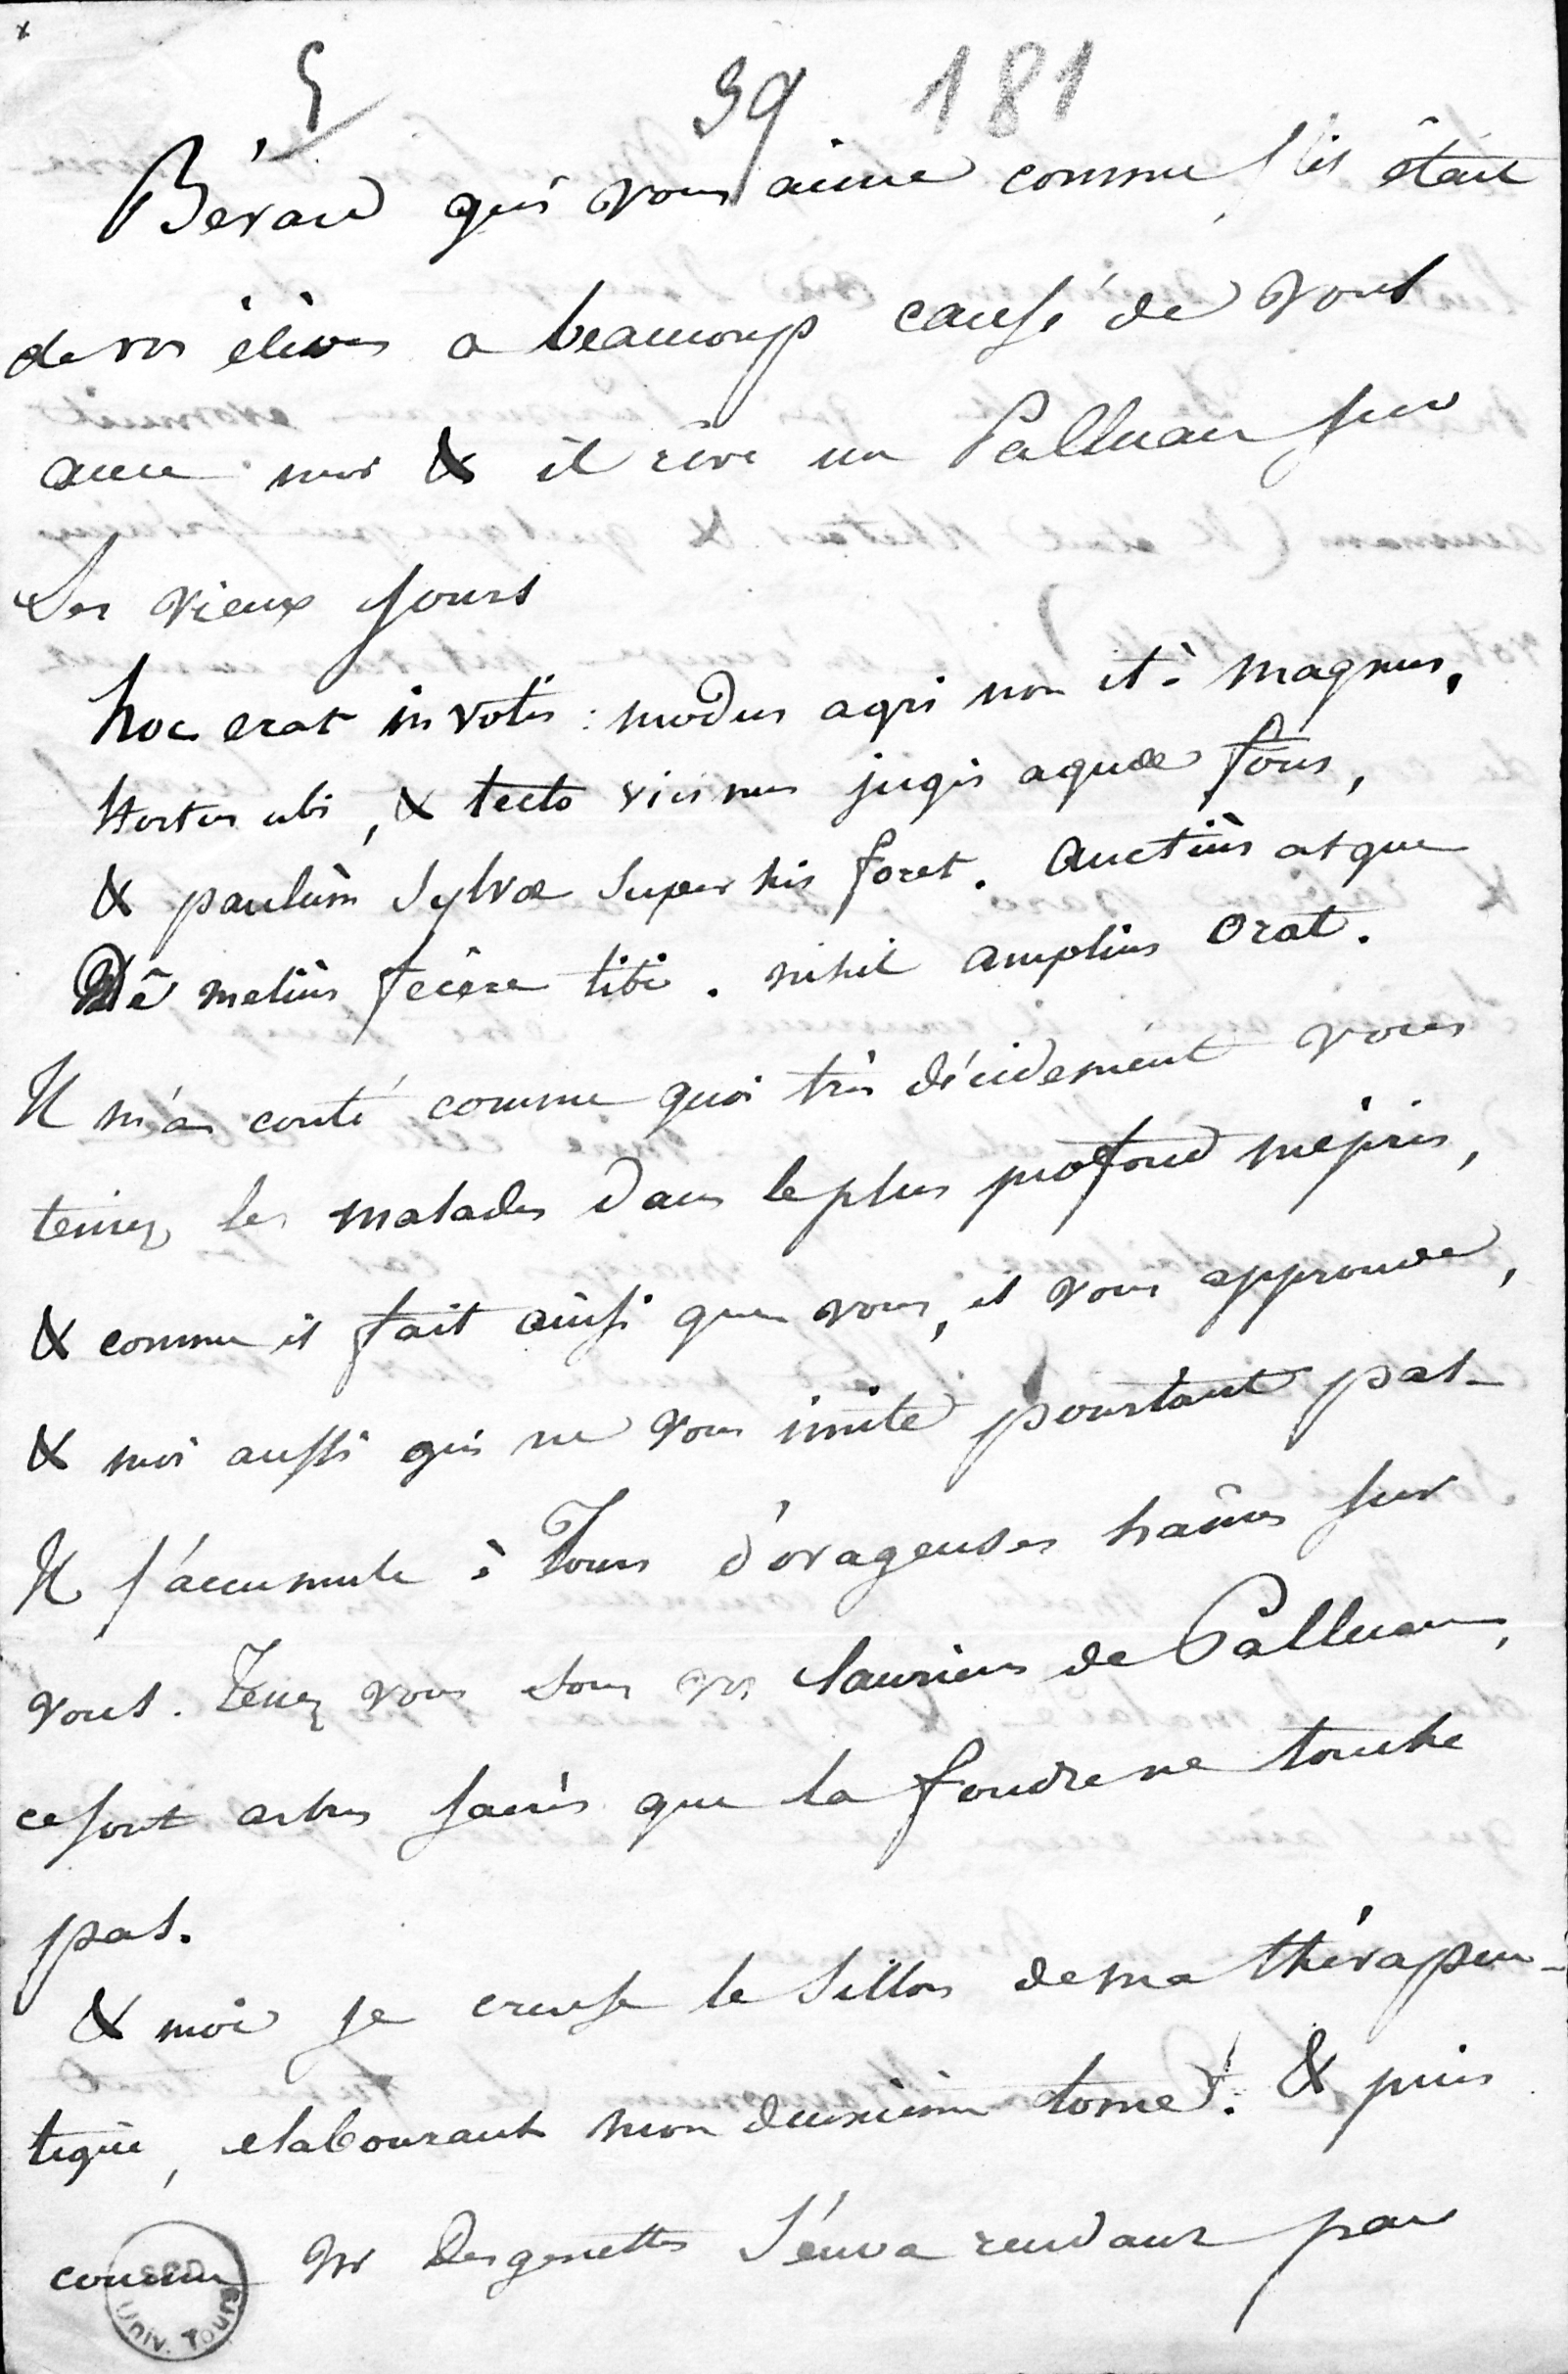 5 39 181
Bérard qui vous aime comme s'il était
de vos élèves a beaucoup causé de vous
avec moi & il rêve un Palluau sur
ses vieux jours
hoc erat in votis : modus agri non ità magnus,
Hortus ubi, & tecto vicinus jugis aquæ fons,
& paulùm sylvæ super his foret. Auctiùs atque
Dî meliùs fecêre tibi. nihil ampliùs orat.
Il m'a conté comme quoi très décidément vous
teniez les malades dans le plus profond mépris,
& comme il fait ainsi que vous, il vous approuve,
& moi aussi qui ne vous imite pourtant pas_
Il s'accumule à Tours d'orageuses haines sur
vous. Tenez vous sous vos lauriers de Palluau,
ce sont arbres sacrés que la foudre ne touche
pas.
& moi je creuse le sillon de ma thérapeu-
tique, elabourant mon deuxième tome. & puis
comme Mr Desgenettes s'en va rendant par
Univ. Tours